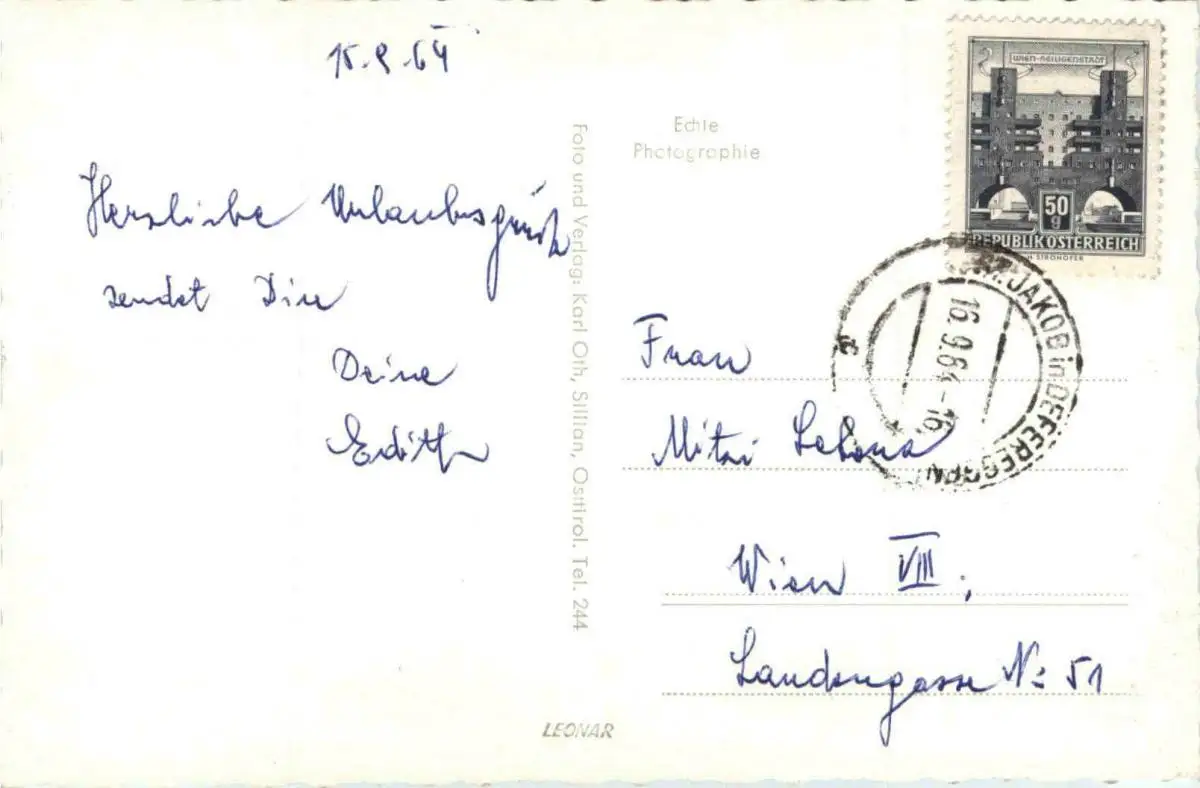 15.9.64
Herzliche Urlaubsgrüße
sendet Dir
Deine
Edith
Foto und Verlag: Karl Oth, Sillian, Osttirol. Tel. 244
Echte
Photographie
WIEN-HEILIGENSTADT
50
g
REPUBLIK ÖSTERREICH
H. STROHOFER
ST. JAKOB in DEFEREGGEN
16.9.64-16
Frau
Mitzi
Wien VIII,
Laudongasse No 51
LEONAR